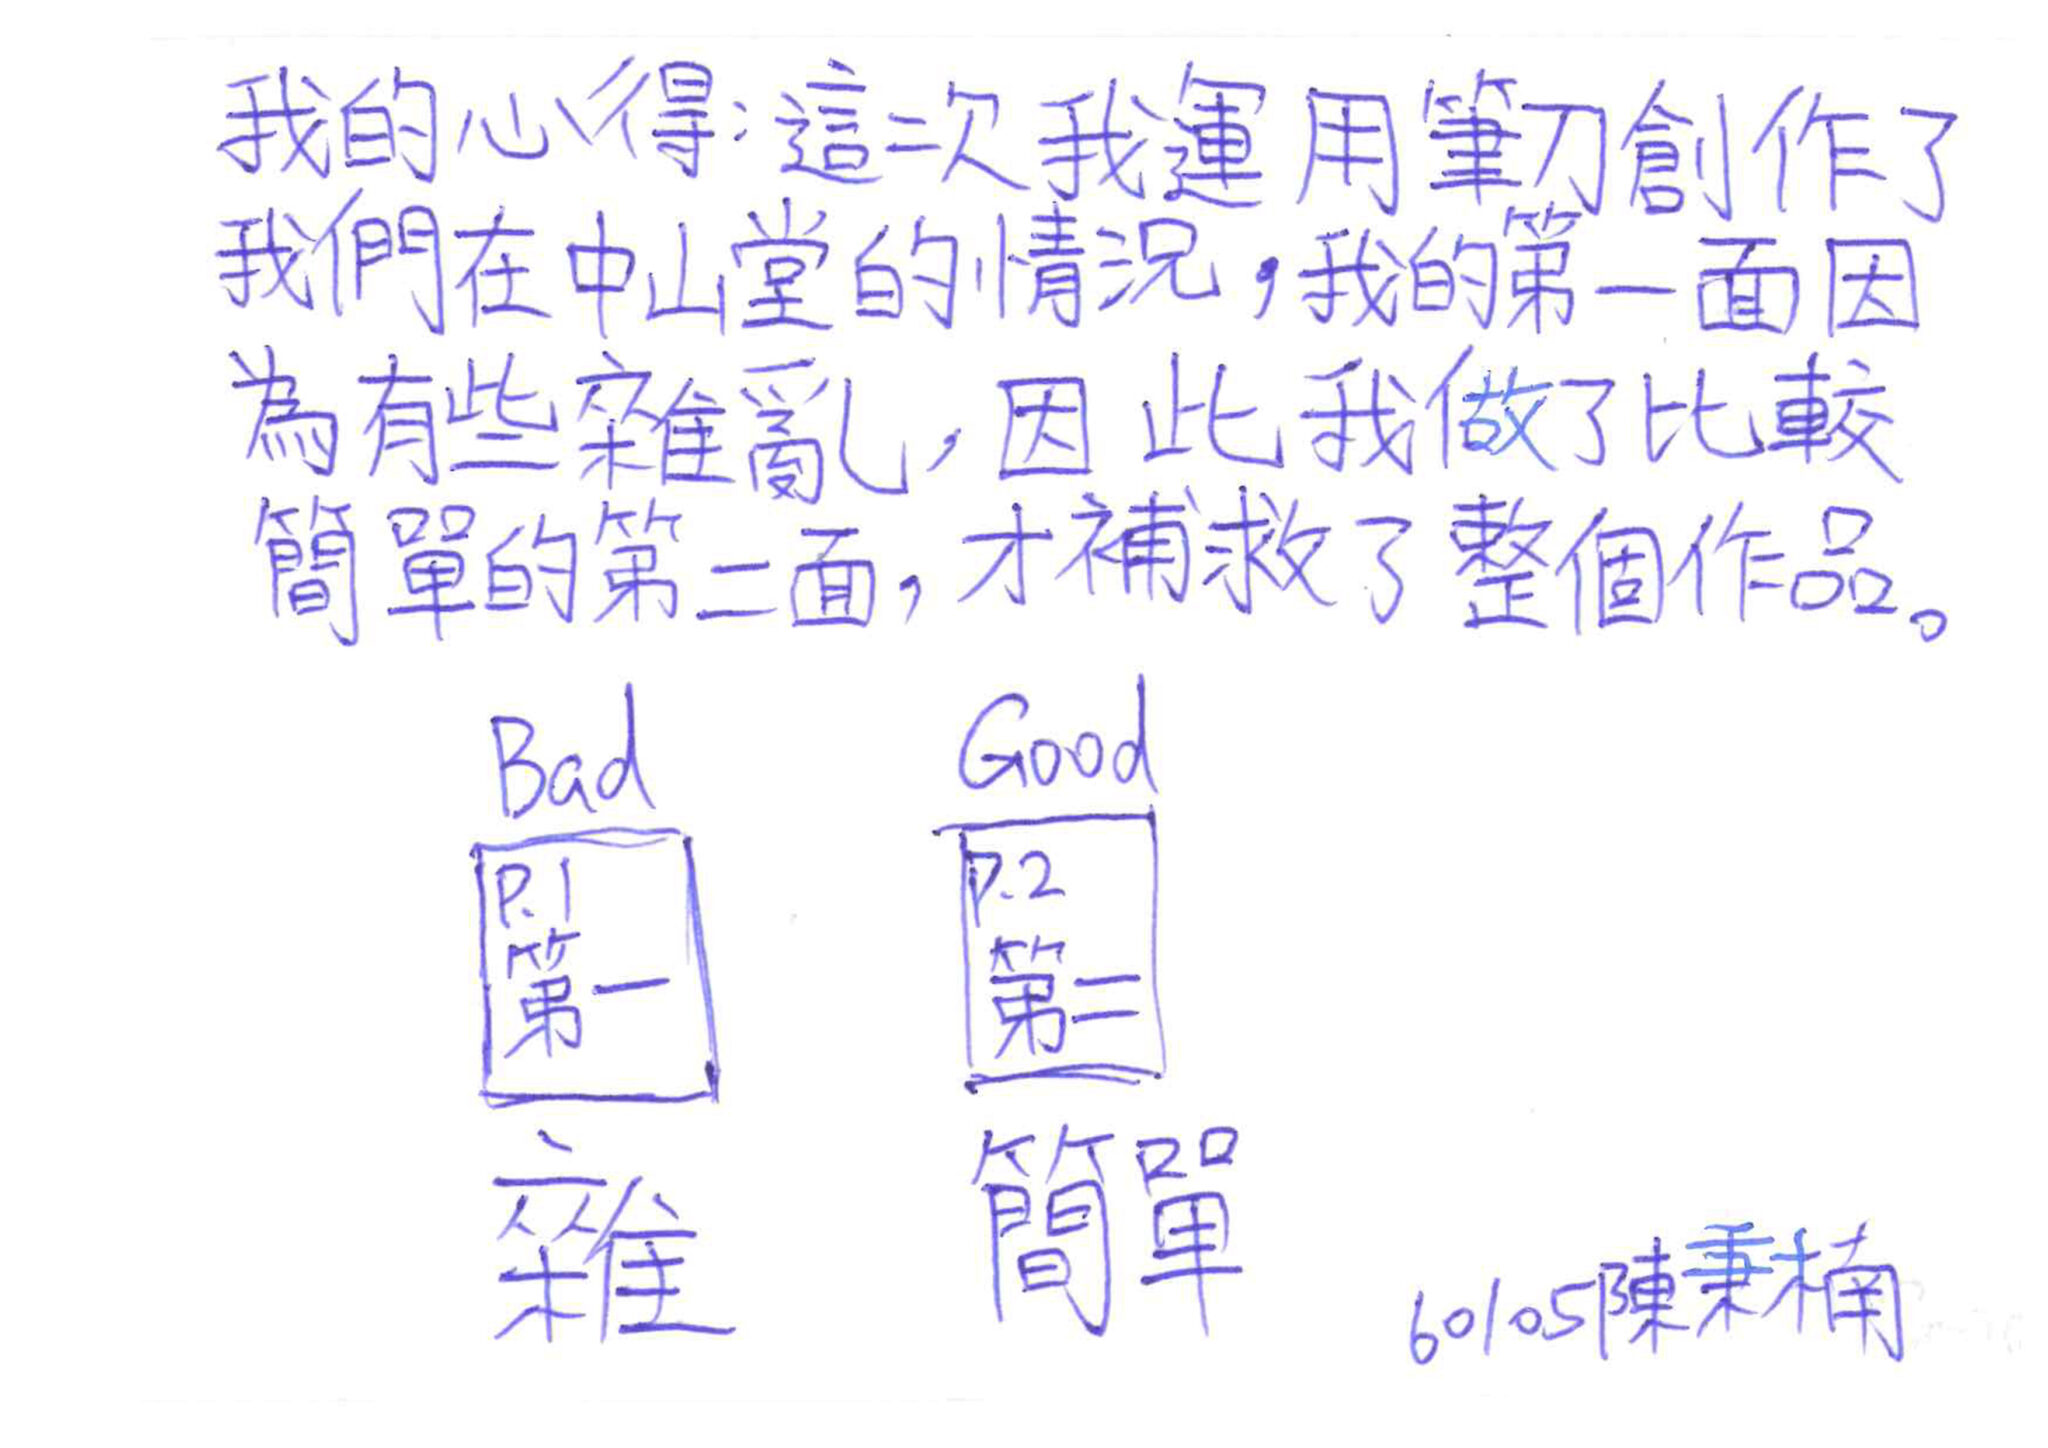 我的心得：這次我運用筆刀創作了
我們在中山堂的情況，我的第一面因
為有些雜亂，因此我做了比較
簡單的第二面，才補救了整個作品。
Bad Good
P.1 P.2
第一 第二
雜 簡單
60105陳秉楠